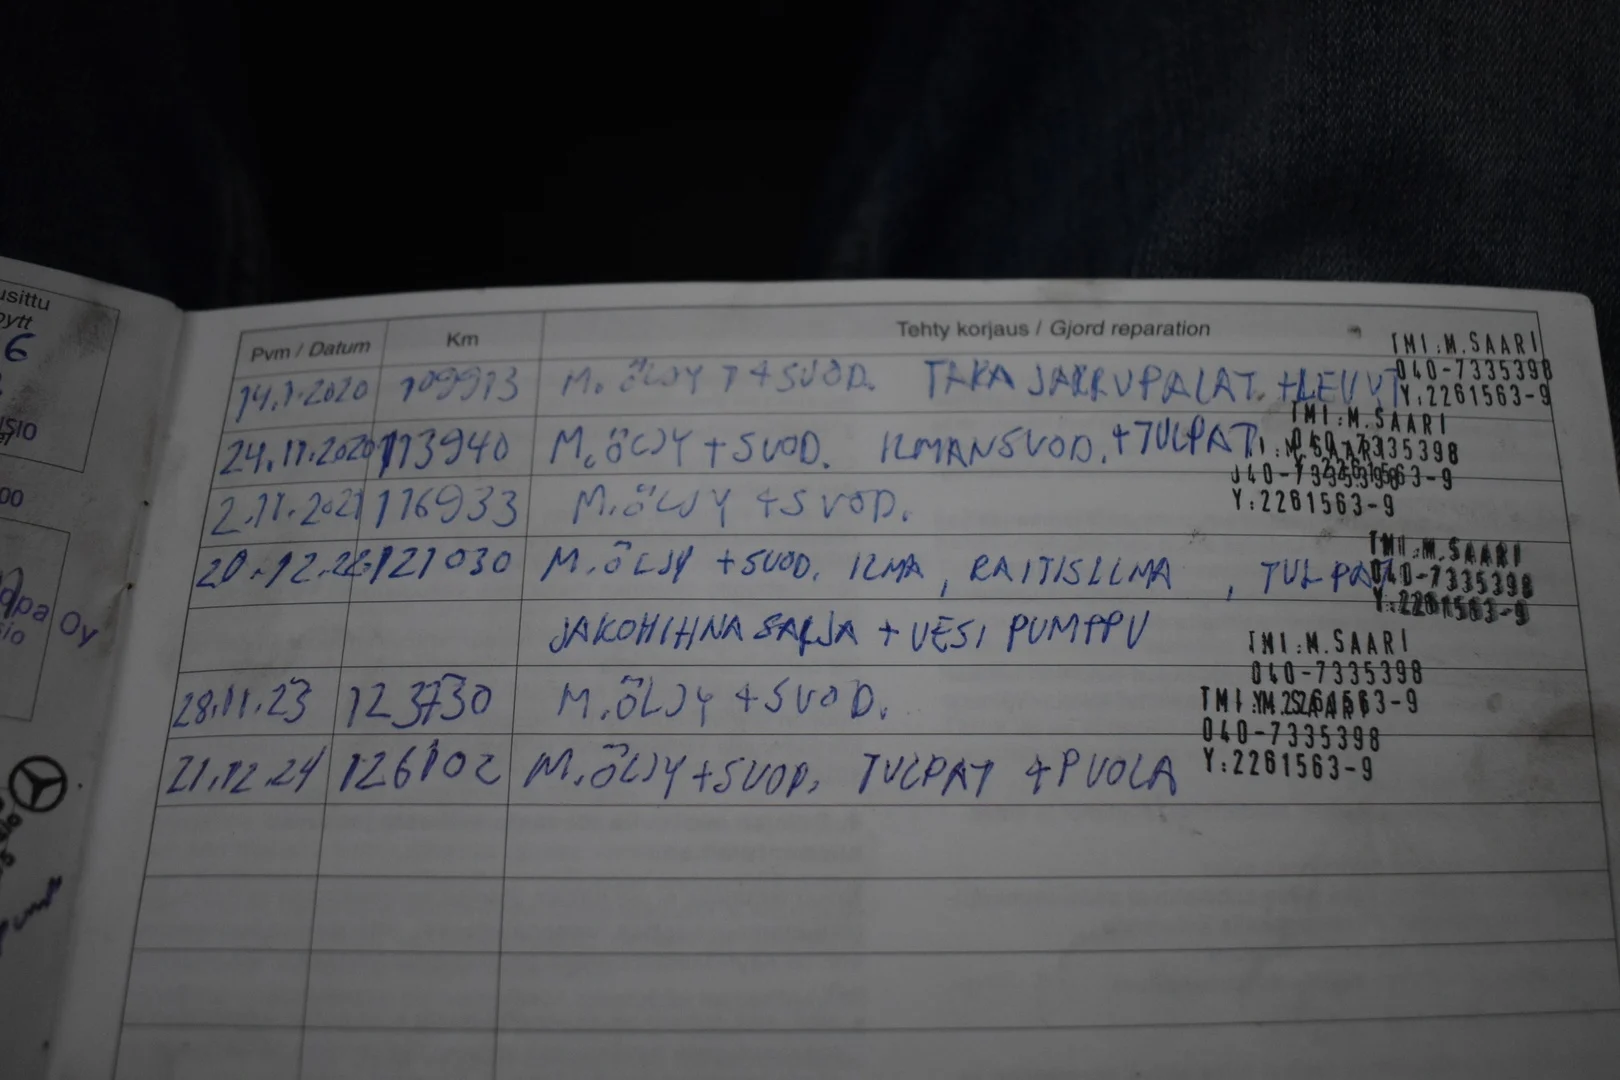 usittu
6
Pvm / Datum Km Tehty korjaus / Gjord reparation
TMI:M.SAARI
040-7335398
Y:2261563-9
14.1.2020 109913 M.ÖLJY + SUOD. TAKA JARRUPALAT. + LEVYT
TMI:M.SAARI
24.11.2020 113940 M.ÖLJY + SUOD. ILMANSUOD. + TULPAT
Y:2261563-9
2.11.2021 116933 M.ÖLJY + SUOD.
TMI:M.SAARI
040-7335398
Y:2261563-9
20.12.22 121030 M.ÖLJY + SUOD. ILMA, RAITISILMA, TULPAT
JAKOHIHNA SARJA + VESI PUMPPU
TMI:M.SAARI
040-7335398
28.11.23 123730 M.ÖLJY + SUOD.
TMI:M.SAARI
040-7335398
Y:2261563-9
21.12.24 126102 M.ÖLJY + SUOD. TULPAT + PUOLA
00
Oy